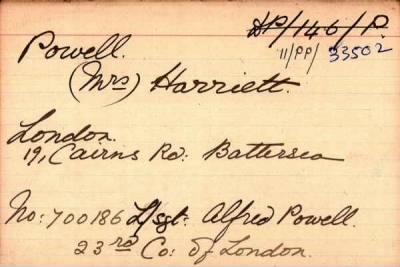 AP/146/P.
11/PP/ 33502
Powell.
(Mrs) Harriett.
London.
19, Cairns Rd: Battersea
No: 700186 L/sgt. Alfred Powell.
23rd Co: of London.